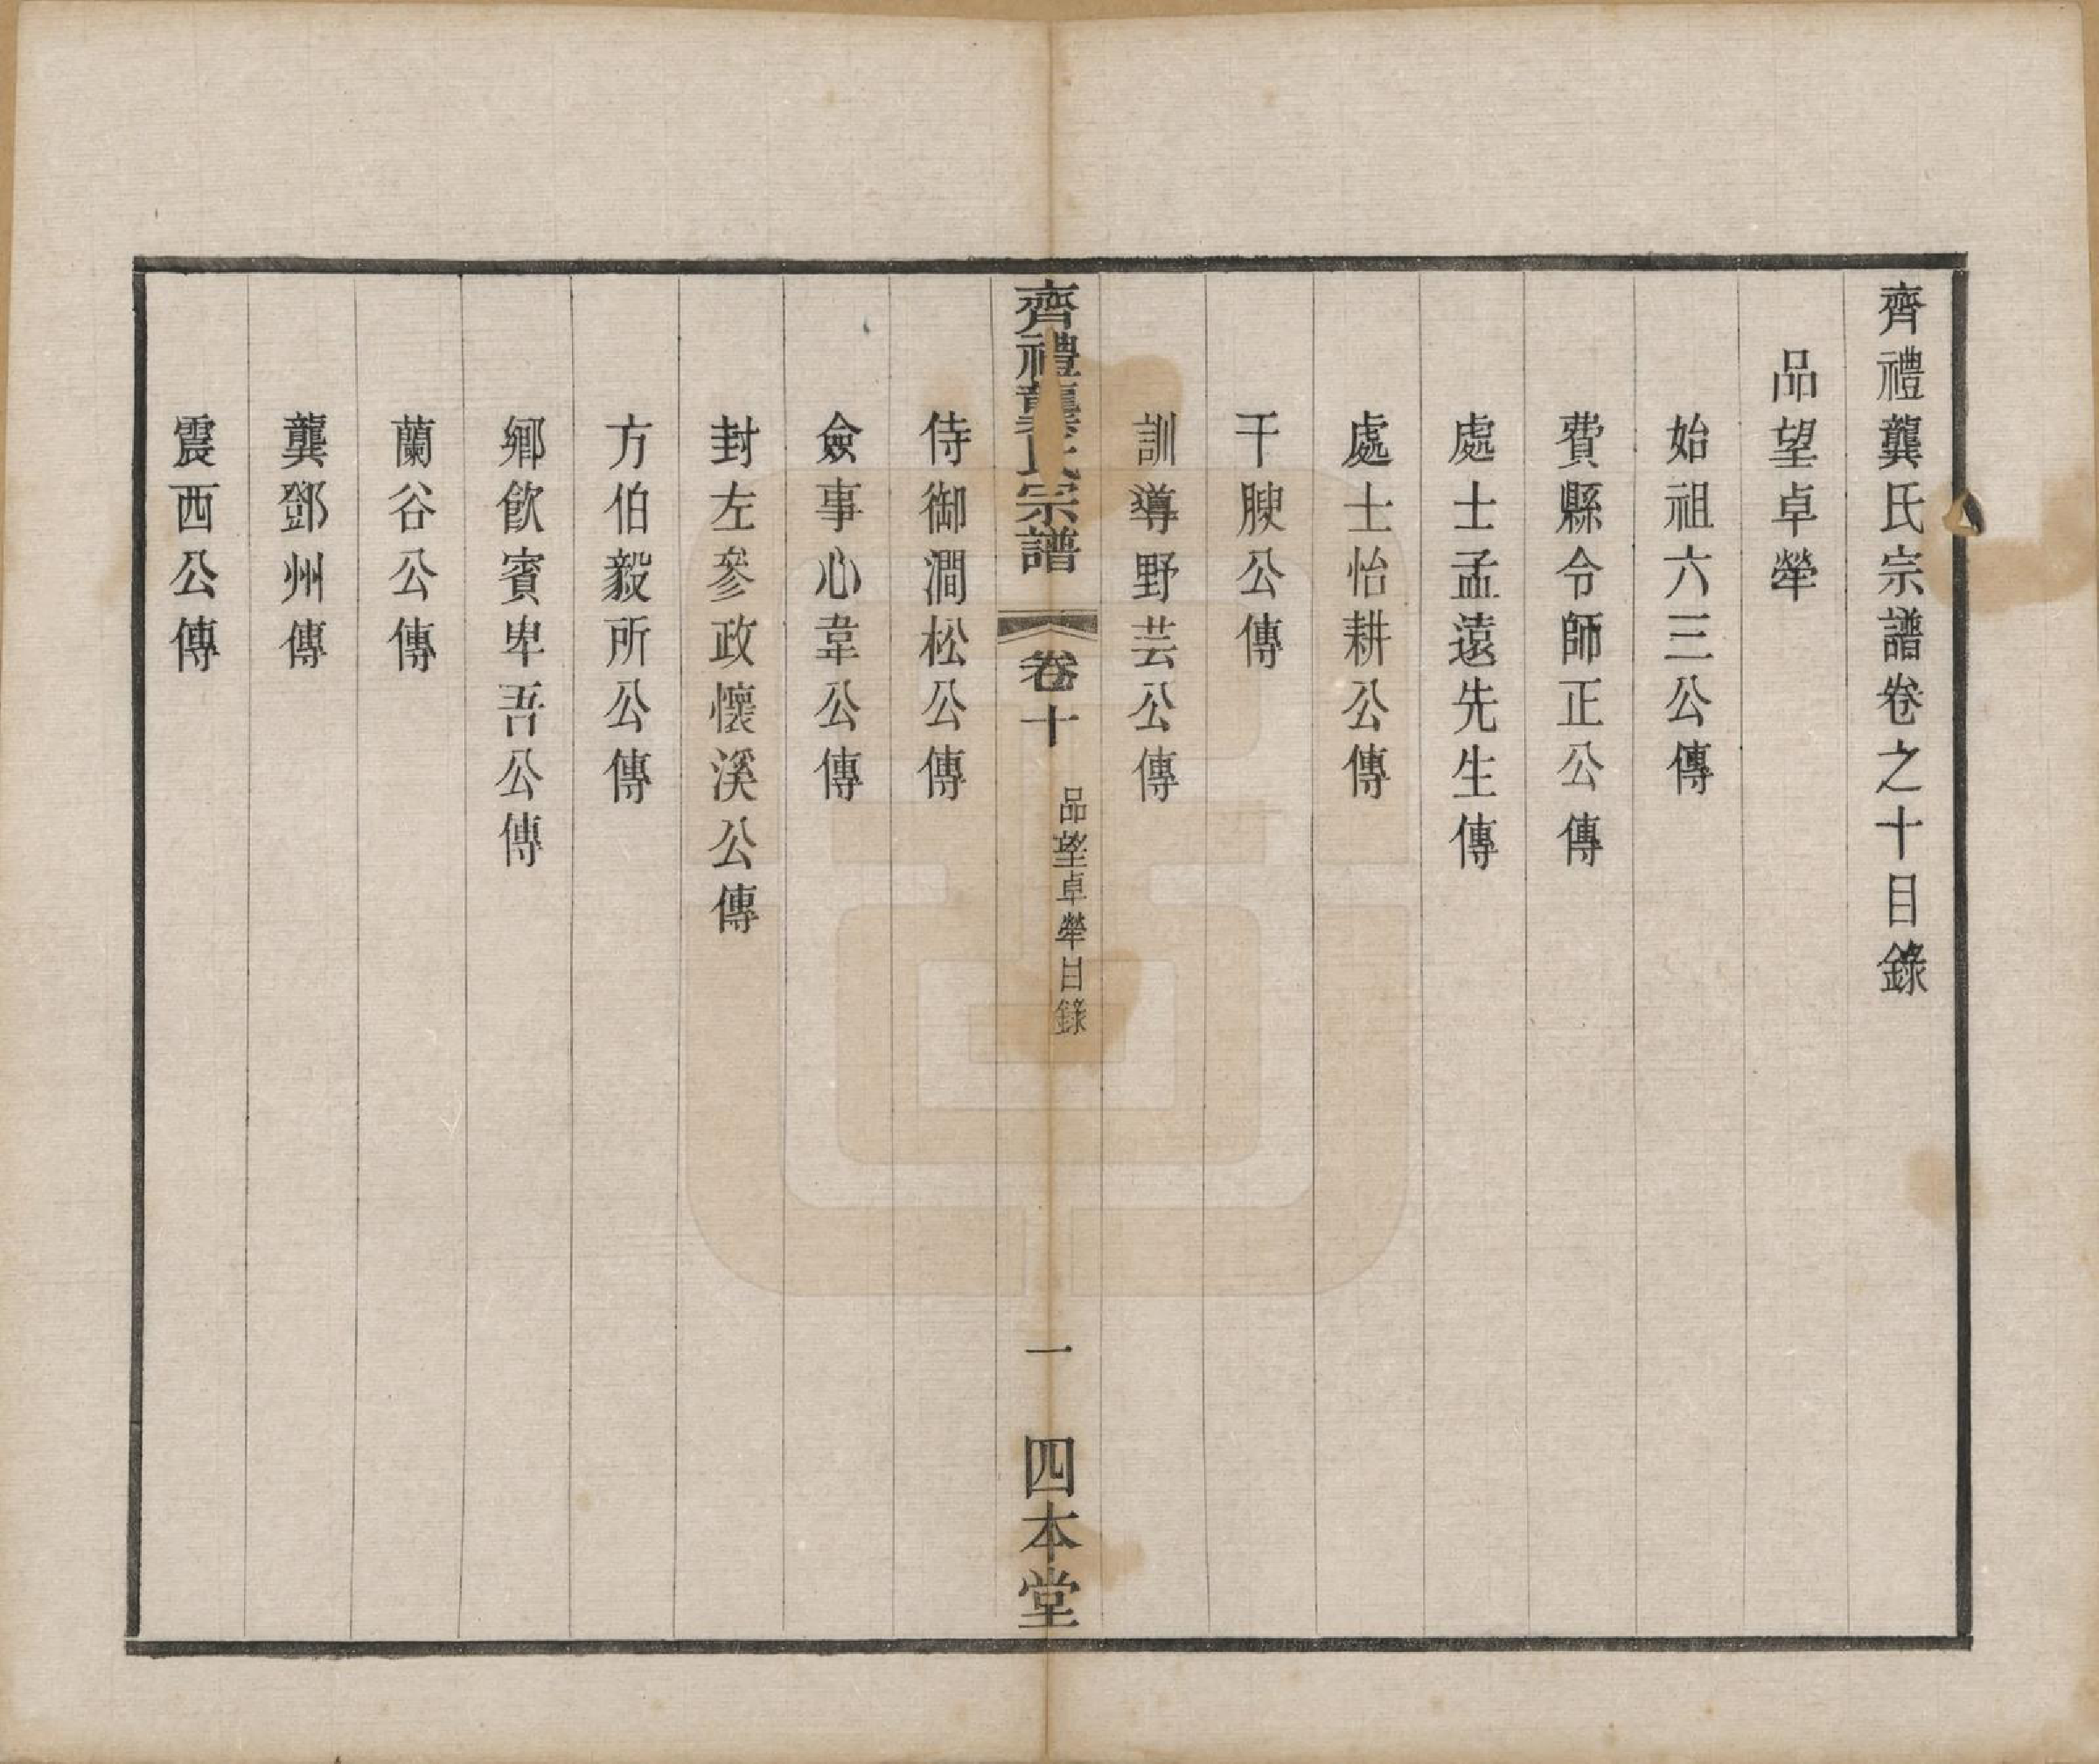 齊禮龔氏宗譜卷之十目錄
品望卓犖
始祖六三公傳
費縣令師正公傳
處士孟遠先生傳
處士怡耕公傳
干腴公傳
訓導野芸公傳
齊禮龔氏宗譜 卷十 品望卓犖目錄 一 四本堂
侍御澗松公傳
僉事心韋公傳
封左參政懷溪公傳
方伯毅所公傳
鄉飲賓卑吾公傳
蘭谷公傳
龔鄧州傳
震西公傳